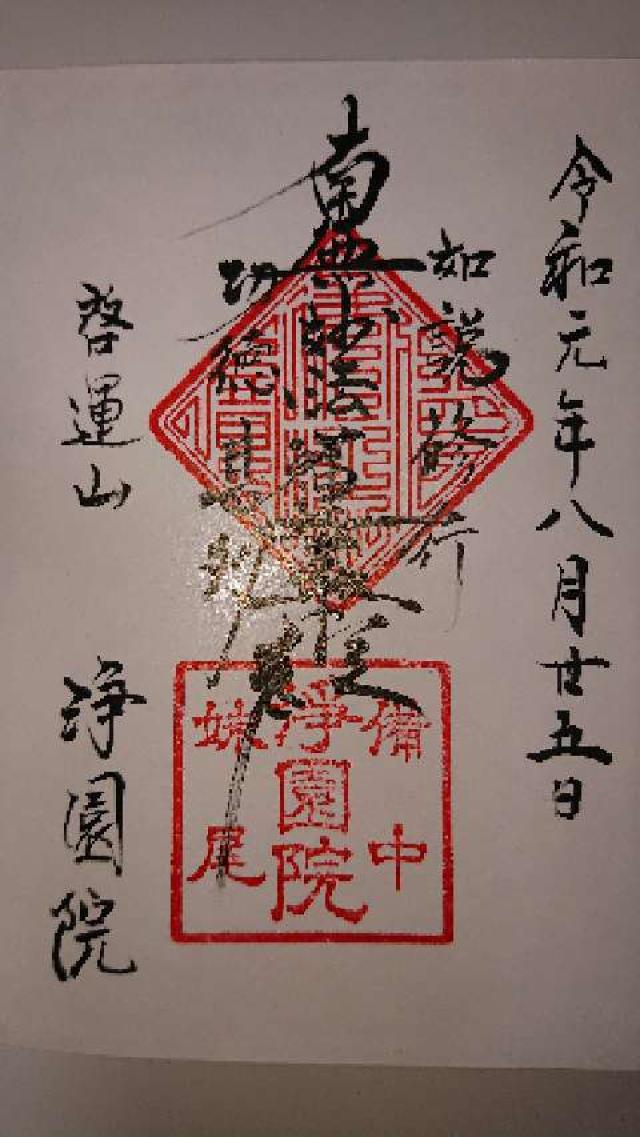 令和元年八月廿五日
如説修行
南無妙法蓮華経
功徳
啓運山
浄園院
備中
浄園院
妹尾